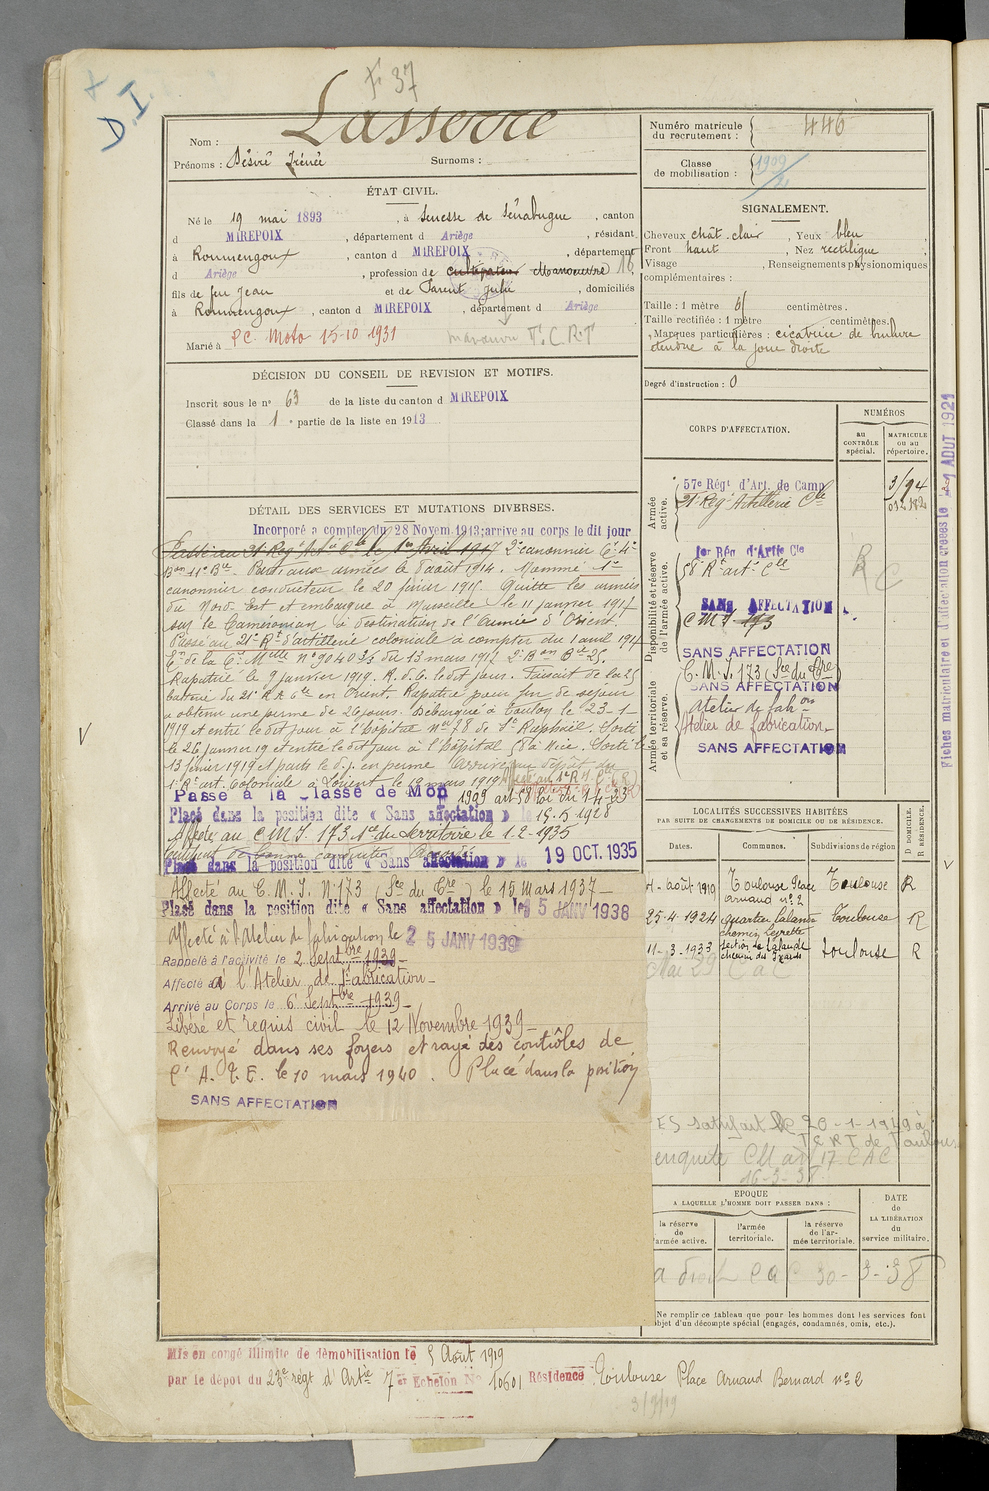 F. 37
D.I.
Nom : Lasserre
Prénoms : Désiré Irénée Surnoms :
ÉTAT CIVIL.
Né le 19 mai 1893, à Senesse de Sénabugue, canton
d MIREPOIX, département d Ariège, résidant
à Roumengoux, canton d MIREPOIX, département
d Ariège, profession de cultivateur Manoeuvre 16
fils de feu Jean et de Parent Julie, domiciliés
à Roumengoux, canton d MIREPOIX, département d Ariège
Marié à P.C. Moto 15-10 1931
DÉCISION DU CONSEIL DE REVISION ET MOTIFS.
Inscrit sous le n° 63 de la liste du canton d MIREPOIX
Classé dans la 1e partie de la liste en 1913
DÉTAIL DES SERVICES ET MUTATIONS DIVERSES.
Incorporé a compter du 28 Novem. 1913; arrive au corps le dit jour
2e canonnier
Parti aux armées le 8 août 1914. Nommé 1er
canonnier conducteur le 20 février 1915. Quitte les armées
du Nord-Est et embarque à Marseille le 11 janvier 1917
sur le Caméronian à destination de l'Armée d'Orient.
Passé au 21e Rt d'artillerie coloniale à compter du 1 avril 1917
du 13 mars 1917
Rapatrié le 9 janvier 1919. R.d.C. le dit jour. Faisait de la 25
batterie du 21e R A Cle en Orient. Rapatrié pour fin de séjour
a obtenu une perme de 26 jours. Débarqué à Toulon le 23-1-
1919 et entré le dit jour à l'hôpital no 78 de St Raphaël. Sorti
le 26 janvier 19 et entré le dit jour à l'hôpital 58 à Nice. Sorti le
13 février 1919 et parti le d.j. en perme. Arrivé au dépôt du
1er Rt art. Coloniale à Lorient le 19 mars 1919
Passé à la Classe de Mob 1909 art 58 Loi du 1-4-23
Placé dans la position dite « Sans affectation » le 15.5 1928
Affecté au C M I. 173 Son du Territoire le 1.2-1935
Placé dans la position dite « Sans affectation » le 19 OCT. 1935
Affecté au C. M. I. N° 173 (Son du Cre) le 15 Mars 1937-
Placé dans la position dite « Sans affectation » le 5 JANV 1938
Affecté à l'Atelier de fabrication le 25 JANV 1939
Rappelé à l'activité le 2 Septbre 1939-
Affecté à l'Atelier de Fabrication-
Arrivé au Corps le 6 Septbre 1939-
Libéré et requis civil le 12 Novembre 1939-
Renvoyé dans ses foyers et rayé des contrôles de
l'A.T.E. le 10 mars 1940. Placé dans la position
SANS AFFECTATION
Mis en congé illimité de démobilisation le 5 Août 1919
par le dépôt du 23e regt d'Artie 7er Echelon No 10601 Résidence Toulouse Place Arnaud Bernard no 2
Numéro matricule du recrutement : 446
Classe de mobilisation : 1909
SIGNALEMENT.
Cheveux chât. clair, Yeux bleu
Front haut, Nez rectiligne,
Visage , Renseignements physionomiques
complémentaires :
Taille : 1 mètre 61 centimètres.
Taille rectifiée : 1 mètre centimètres.
Marques particulières : cicatrice de brûlure
étendue à la joue droite
Degré d'instruction : 0
CORPS D'AFFECTATION.
NUMÉROS
au CONTRÔLE spécial.
MATRICULE ou au répertoire.
Armée active.
57e Régt d'Art. de Camp.
21e Regt Artillerie Cle
Disponibilité et réserve de l'armée active.
1er Rég d'Artie Cle
58 Rt art. Cle
SANS AFFECTATION
C M I 173
SANS AFFECTATION
C. M. I. 173 (Son du Cre)
Armée territoriale et sa réserve.
SANS AFFECTATION
Atelier de fabon
Atelier de fabrication-
SANS AFFECTATION
Fiches matriculaire et d'affectation créées le 1 AOUT 1921
LOCALITÉS SUCCESSIVES HABITÉES
PAR SUITE DE CHANGEMENTS DE DOMICILE OU DE RÉSIDENCE.
Dates. Communes. Subdivisions de région
D DOMICILE. R RÉSIDENCE.
4-août 1919 Toulouse Place Arnaud no 2 Toulouse R
25-4-1924 quartier Lalande Toulouse R
11-3-1933 section de Lalande Toulouse R
enquête
16-3-38
EPOQUE
A LAQUELLE L'HOMME DOIT PASSER DANS :
la réserve de l'armée active.
l'armée territoriale.
la réserve de l'armée territoriale.
DATE de LA LIBÉRATION du service militaire.
30-3-38
Ne remplir ce tableau que pour les hommes dont les services font
objet d'un décompte spécial (engagés, condamnés, omis, etc.).